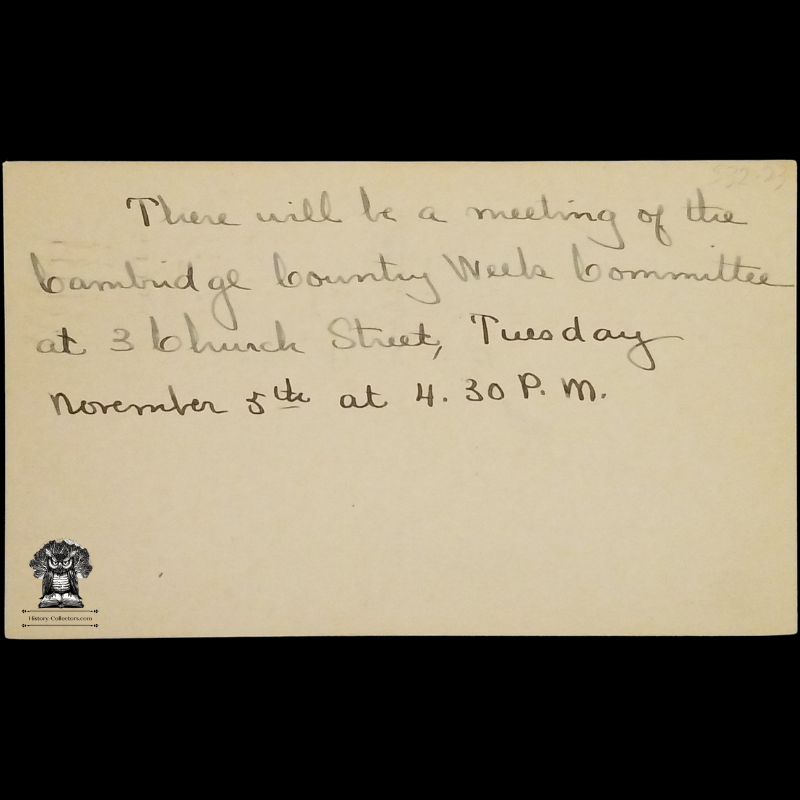 There will be a meeting of the
Cambridge Country Week Committee
at 3 Church Street, Tuesday
November 5th at 4.30 P.M.
History-Collectors.com